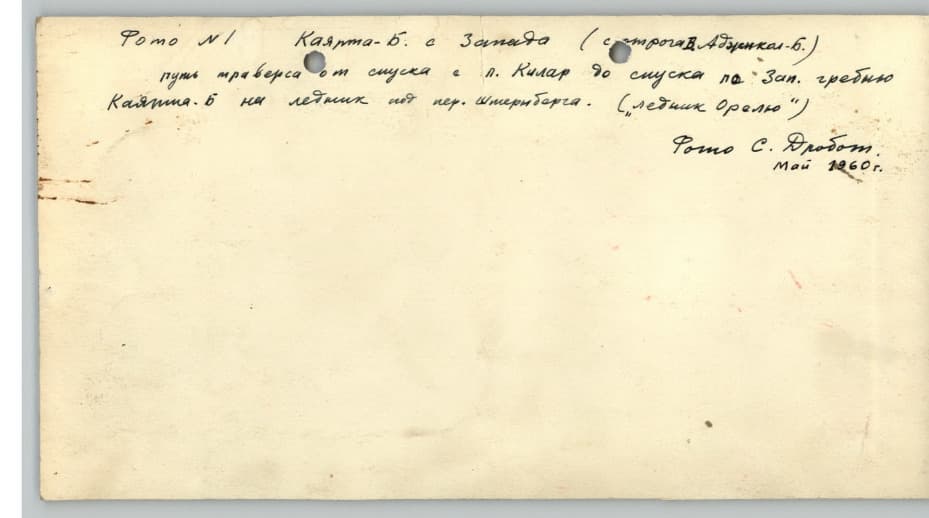 Фото N 1 Каярта-Б. с Запада (с отрога В. Аджикол-Б.)
путь траверса от спуска с п. Килар до спуска по Зап. гребню
Каярта-Б на ледник под пер. Штернберга. („ледник Орелю")
Фото С. Дробот.
Май 1960г.